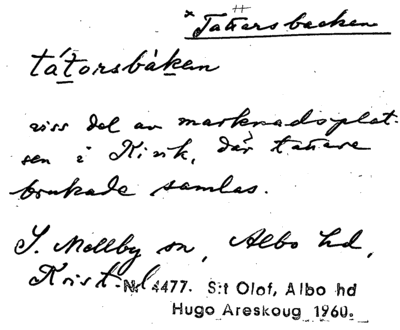 * Tattarsbacken
tá́torsbàken
viss del av marknadsplat-
sen i Kivik, där tattare
brukade samlas.
S. Mellby sn, Albo hd,
Krist. l.
Nr. 4477. S:t Olof, Albo hd
Hugo Areskoug 1960.